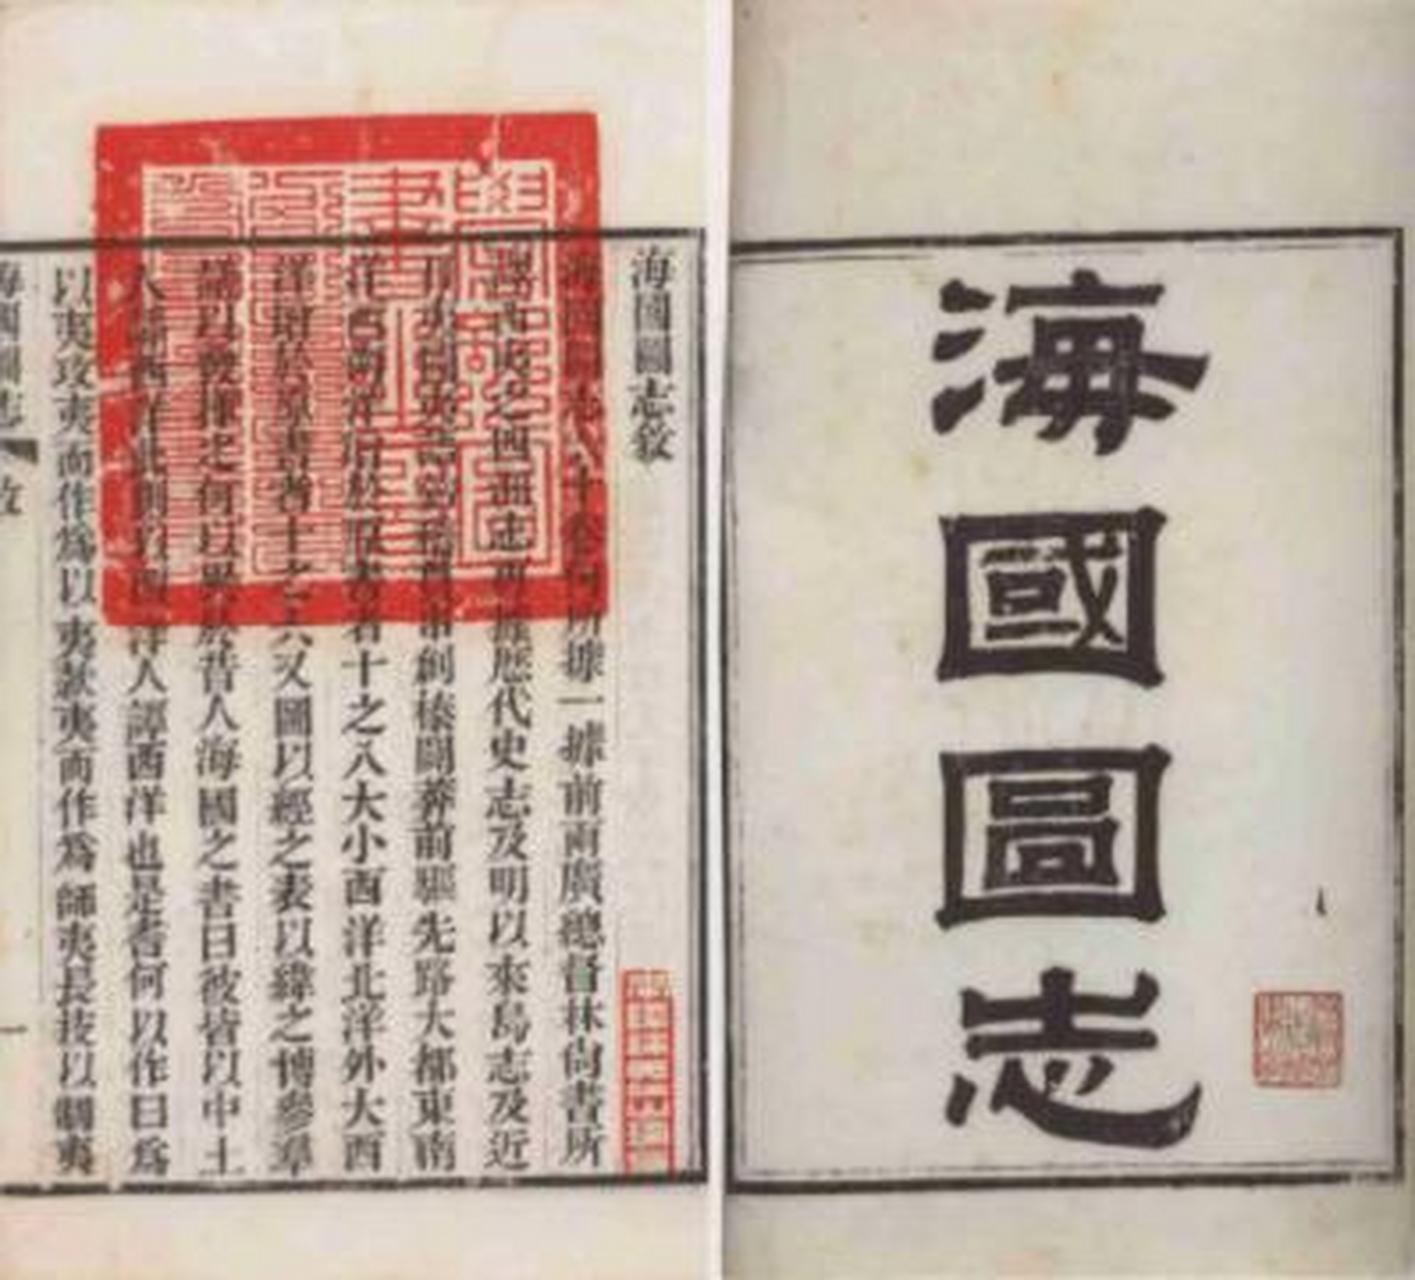 海國圖志
海國圖志敘
海國圖志十卷何所據一據前兩廣總督林尚書所
譯西夷之四洲志再據歷代史志及明以來島志及近
日夷圖夷語鉤稽貫串創榛闢莽前驅先路大都東南
洋西南洋增於原書者十之八大小西洋北洋外大西
洋增於原書者十之六又圖以經之表以緯之博參羣
議以發揮之何以異於昔人海國之書曰彼皆以中土
人譚西洋此則以西洋人譚西洋也是書何以作曰為
以夷攻夷而作為以夷款夷而作為師夷長技以制夷
海國圖志 敘 一